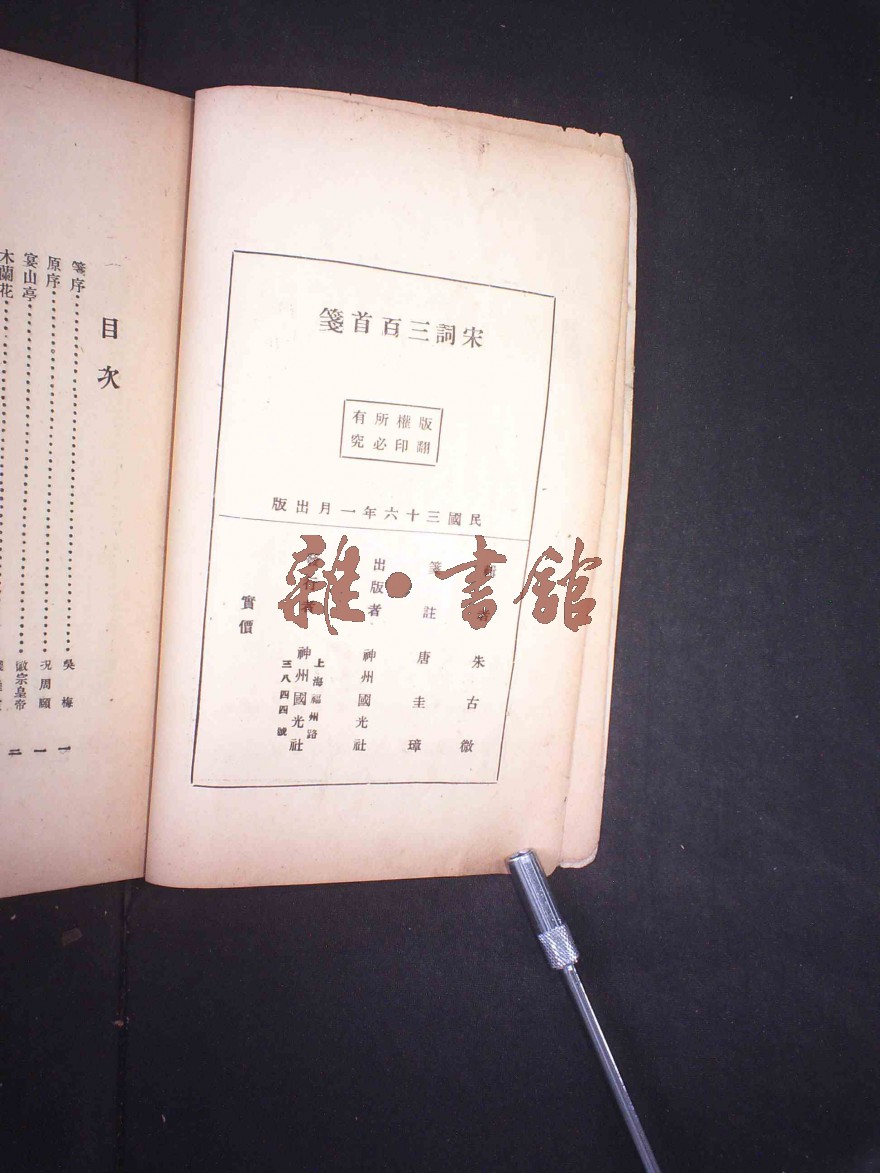 宋詞三百首箋
版權所有
翻印必究
民國三十六年一月出版
朱古微
箋註 唐圭璋
出版者 神州國光社
發行者 神州國光社
上海福州路
三八四四號
實價
雜·書館
目次
箋序 吳梅 一
原序 況周頤 一
宴山亭 徽宗皇帝 二
木蘭花